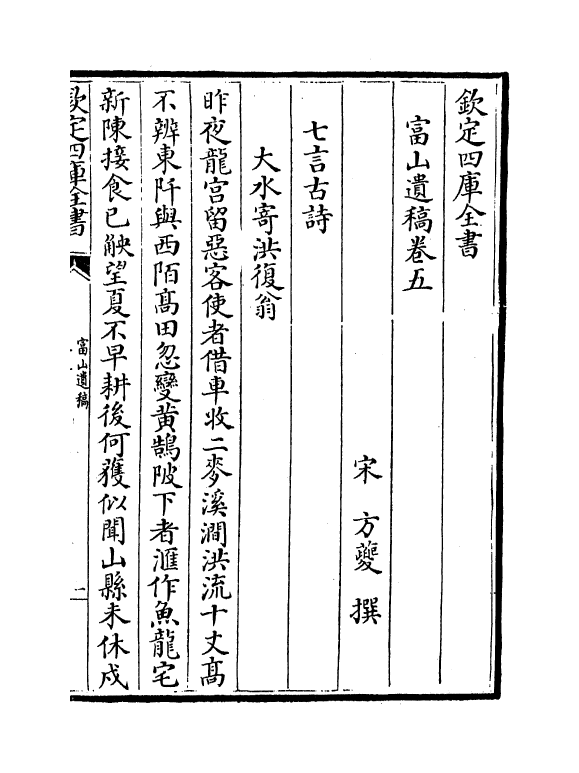 欽定四庫全書
富山遺稿卷五
宋 方夔 撰
七言古詩
大水寄洪復翁
昨夜龍宫留惡客使者借車收二麥溪澗洪流十丈髙
不辨東阡與西陌髙田忽變黄鵠陂下者滙作魚龍宅
新陳接食已觖望夏不早耕後何獲似聞山縣未休戍
欽定四庫全書
富山遺稿